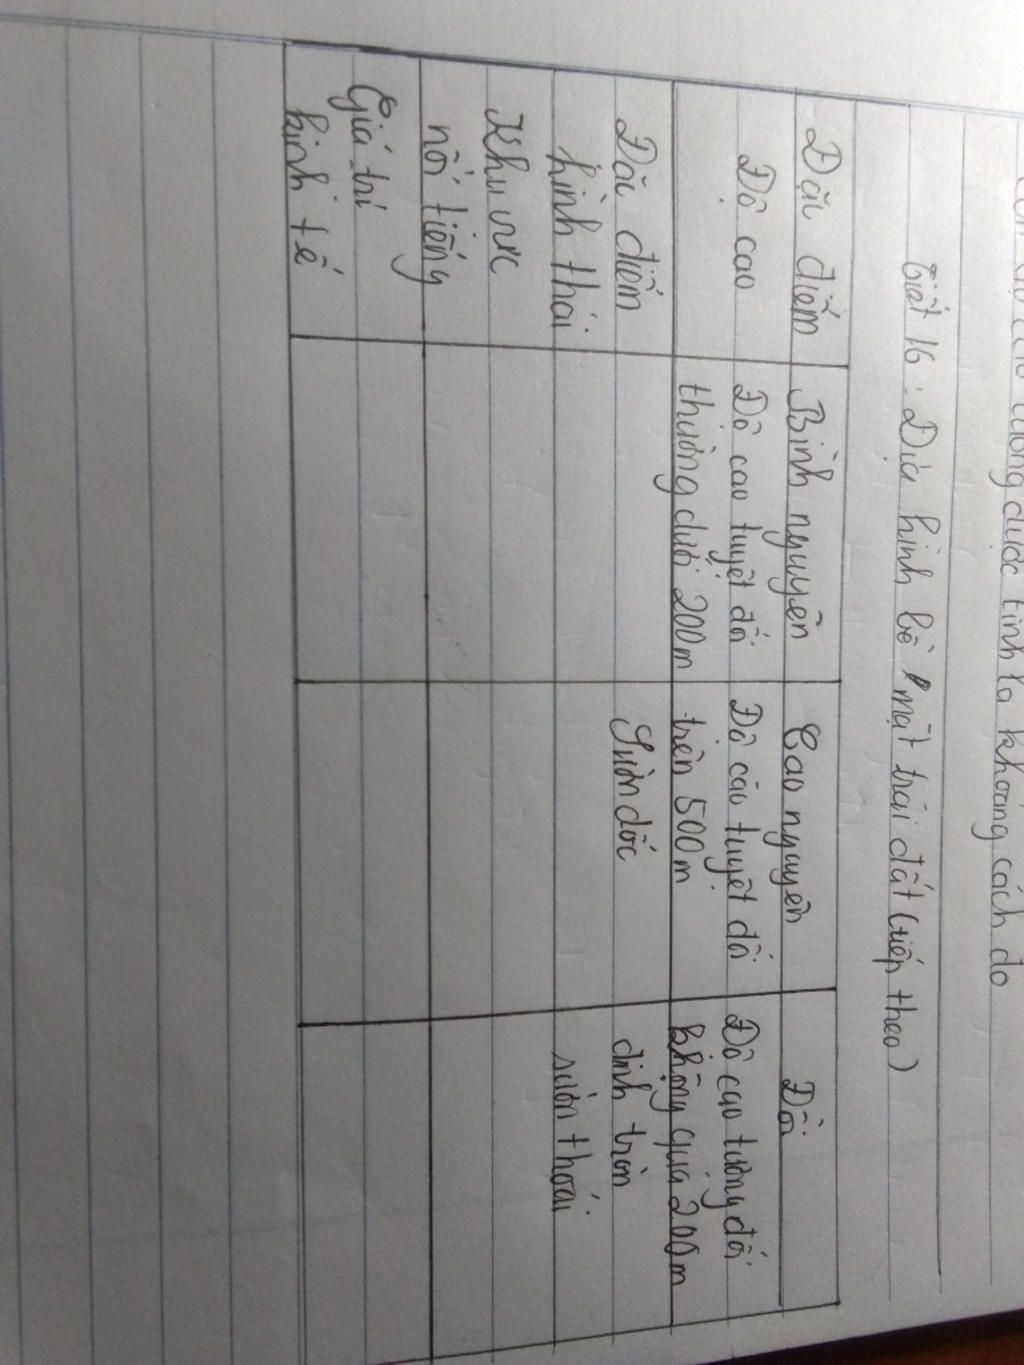 được tính là khoảng cách đo
Tiết 16: Địa hình bề mặt trái đất (tiếp theo)
Đặc điểm Bình nguyên Cao nguyên Đồi
Độ cao Độ cao tuyệt đối Độ cao tuyệt đối Độ cao tương đối
thường dưới 200m trên 500m không quá 200m
Đặc điểm Sườn dốc đỉnh tròn
hình thái sườn thoải
Khu vực
nổi tiếng
Giá trị
kinh tế